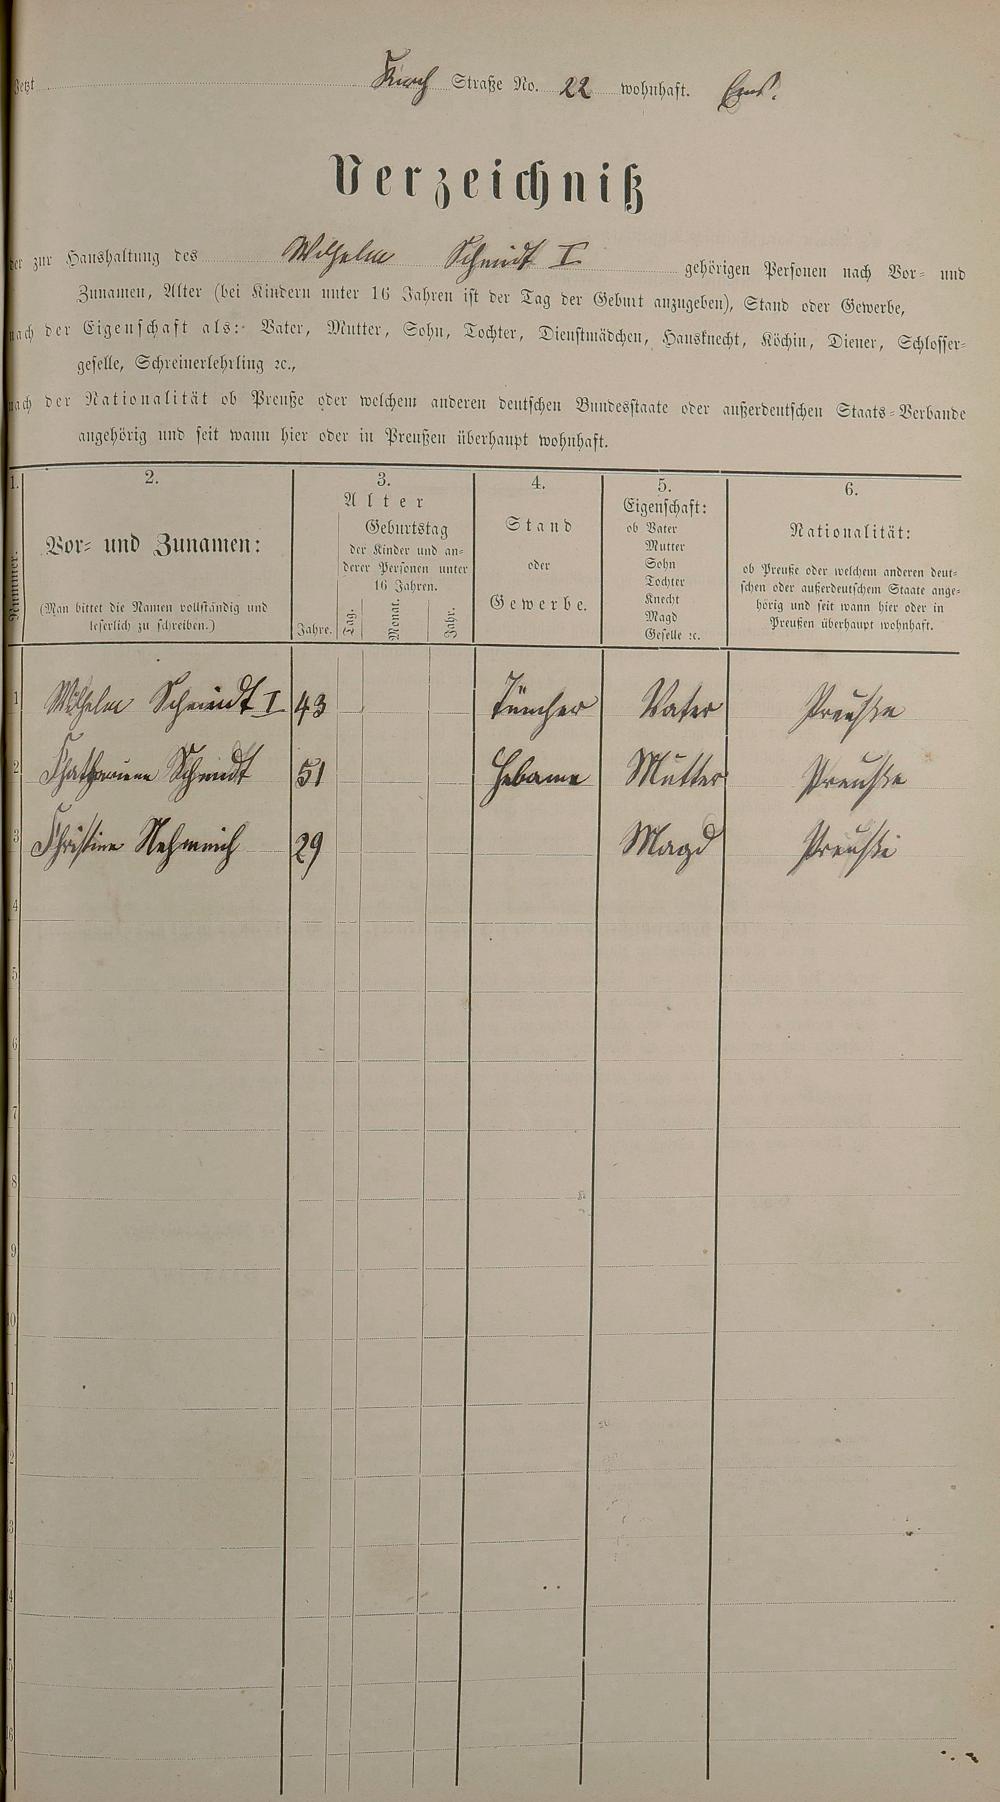 Jetzt Kirch Straße No. 22 wohnhaft. Ems.
Verzeichniß
der zur Haushaltung des Wilhelm Schmidt I gehörigen Personen nach Vor- und
Zunamen, Alter (bei Kindern unter 16 Jahren ist der Tag der Geburt anzugeben), Stand oder Gewerbe,
nach der Eigenschaft als: Vater, Mutter, Sohn, Tochter, Dienstmädchen, Hausknecht, Köchin, Diener, Schlosser-
geselle, Schreinerlehrling ꝛc.,
nach der Nationalität ob Preuße oder welchem anderen deutschen Bundesstaate oder außerdeutschen Staats-Verbande
angehörig und seit wann hier oder in Preußen überhaupt wohnhaft.
1. 2. 3. 4. 5. 6.
Nummer.
Vor- und Zunamen:
(Man bittet die Namen vollständig und
leserlich zu schreiben.)
Alter
Jahre.
Geburtstag
der Kinder und an-
derer Personen unter
16 Jahren.
Tag. Monat. Jahr.
Stand
oder
Gewerbe.
Eigenschaft:
ob Vater
Mutter
Sohn
Tochter
Knecht
Magd
Geselle ꝛc.
Nationalität:
ob Preuße oder welchem anderen deut-
schen oder außerdeutschem Staate ange-
hörig und seit wann hier oder in
Preußen überhaupt wohnhaft.
1 Wilhelm Schmidt I 43 Tüncher Vater Preuße
2 Schmidt 51 Hebame Mutter Preuße
3 Christine 29 Magd Preuße
4
5
6
7
8
9
10
11
12
13
14
15
16